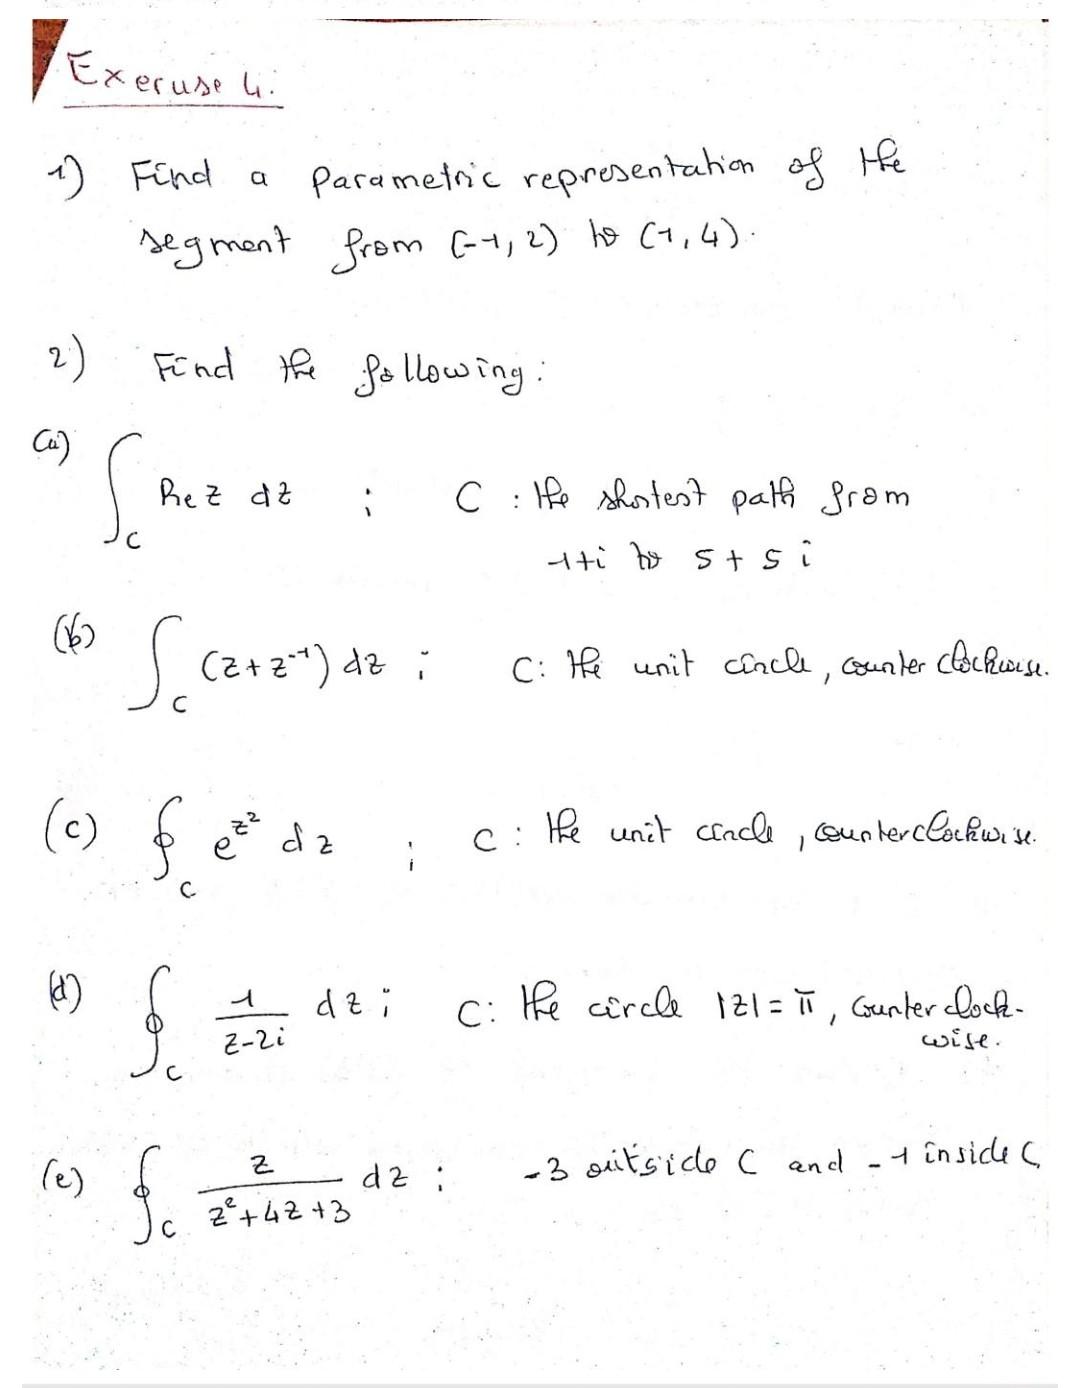 Exercise 4:
1) Find a parametric representation of the
segment from (-1, 2) to (1, 4).
2) Find the following:
(a) ∫_C Re z dz ; C : the shortest path from
1+i to 5+5i
(b) ∫_C (z+z⁻¹) dz ; C: the unit circle, counter clockwise.
(c) ∮_C e^{z²} dz ; C : the unit circle, counterclockwise.
(d) ∮_C 1/(z-2i) dz ; C: the circle |z| = π, counter clock-
wise.
(e) ∮_C z/(z²+4z+3) dz ; -3 outside C and -1 inside C